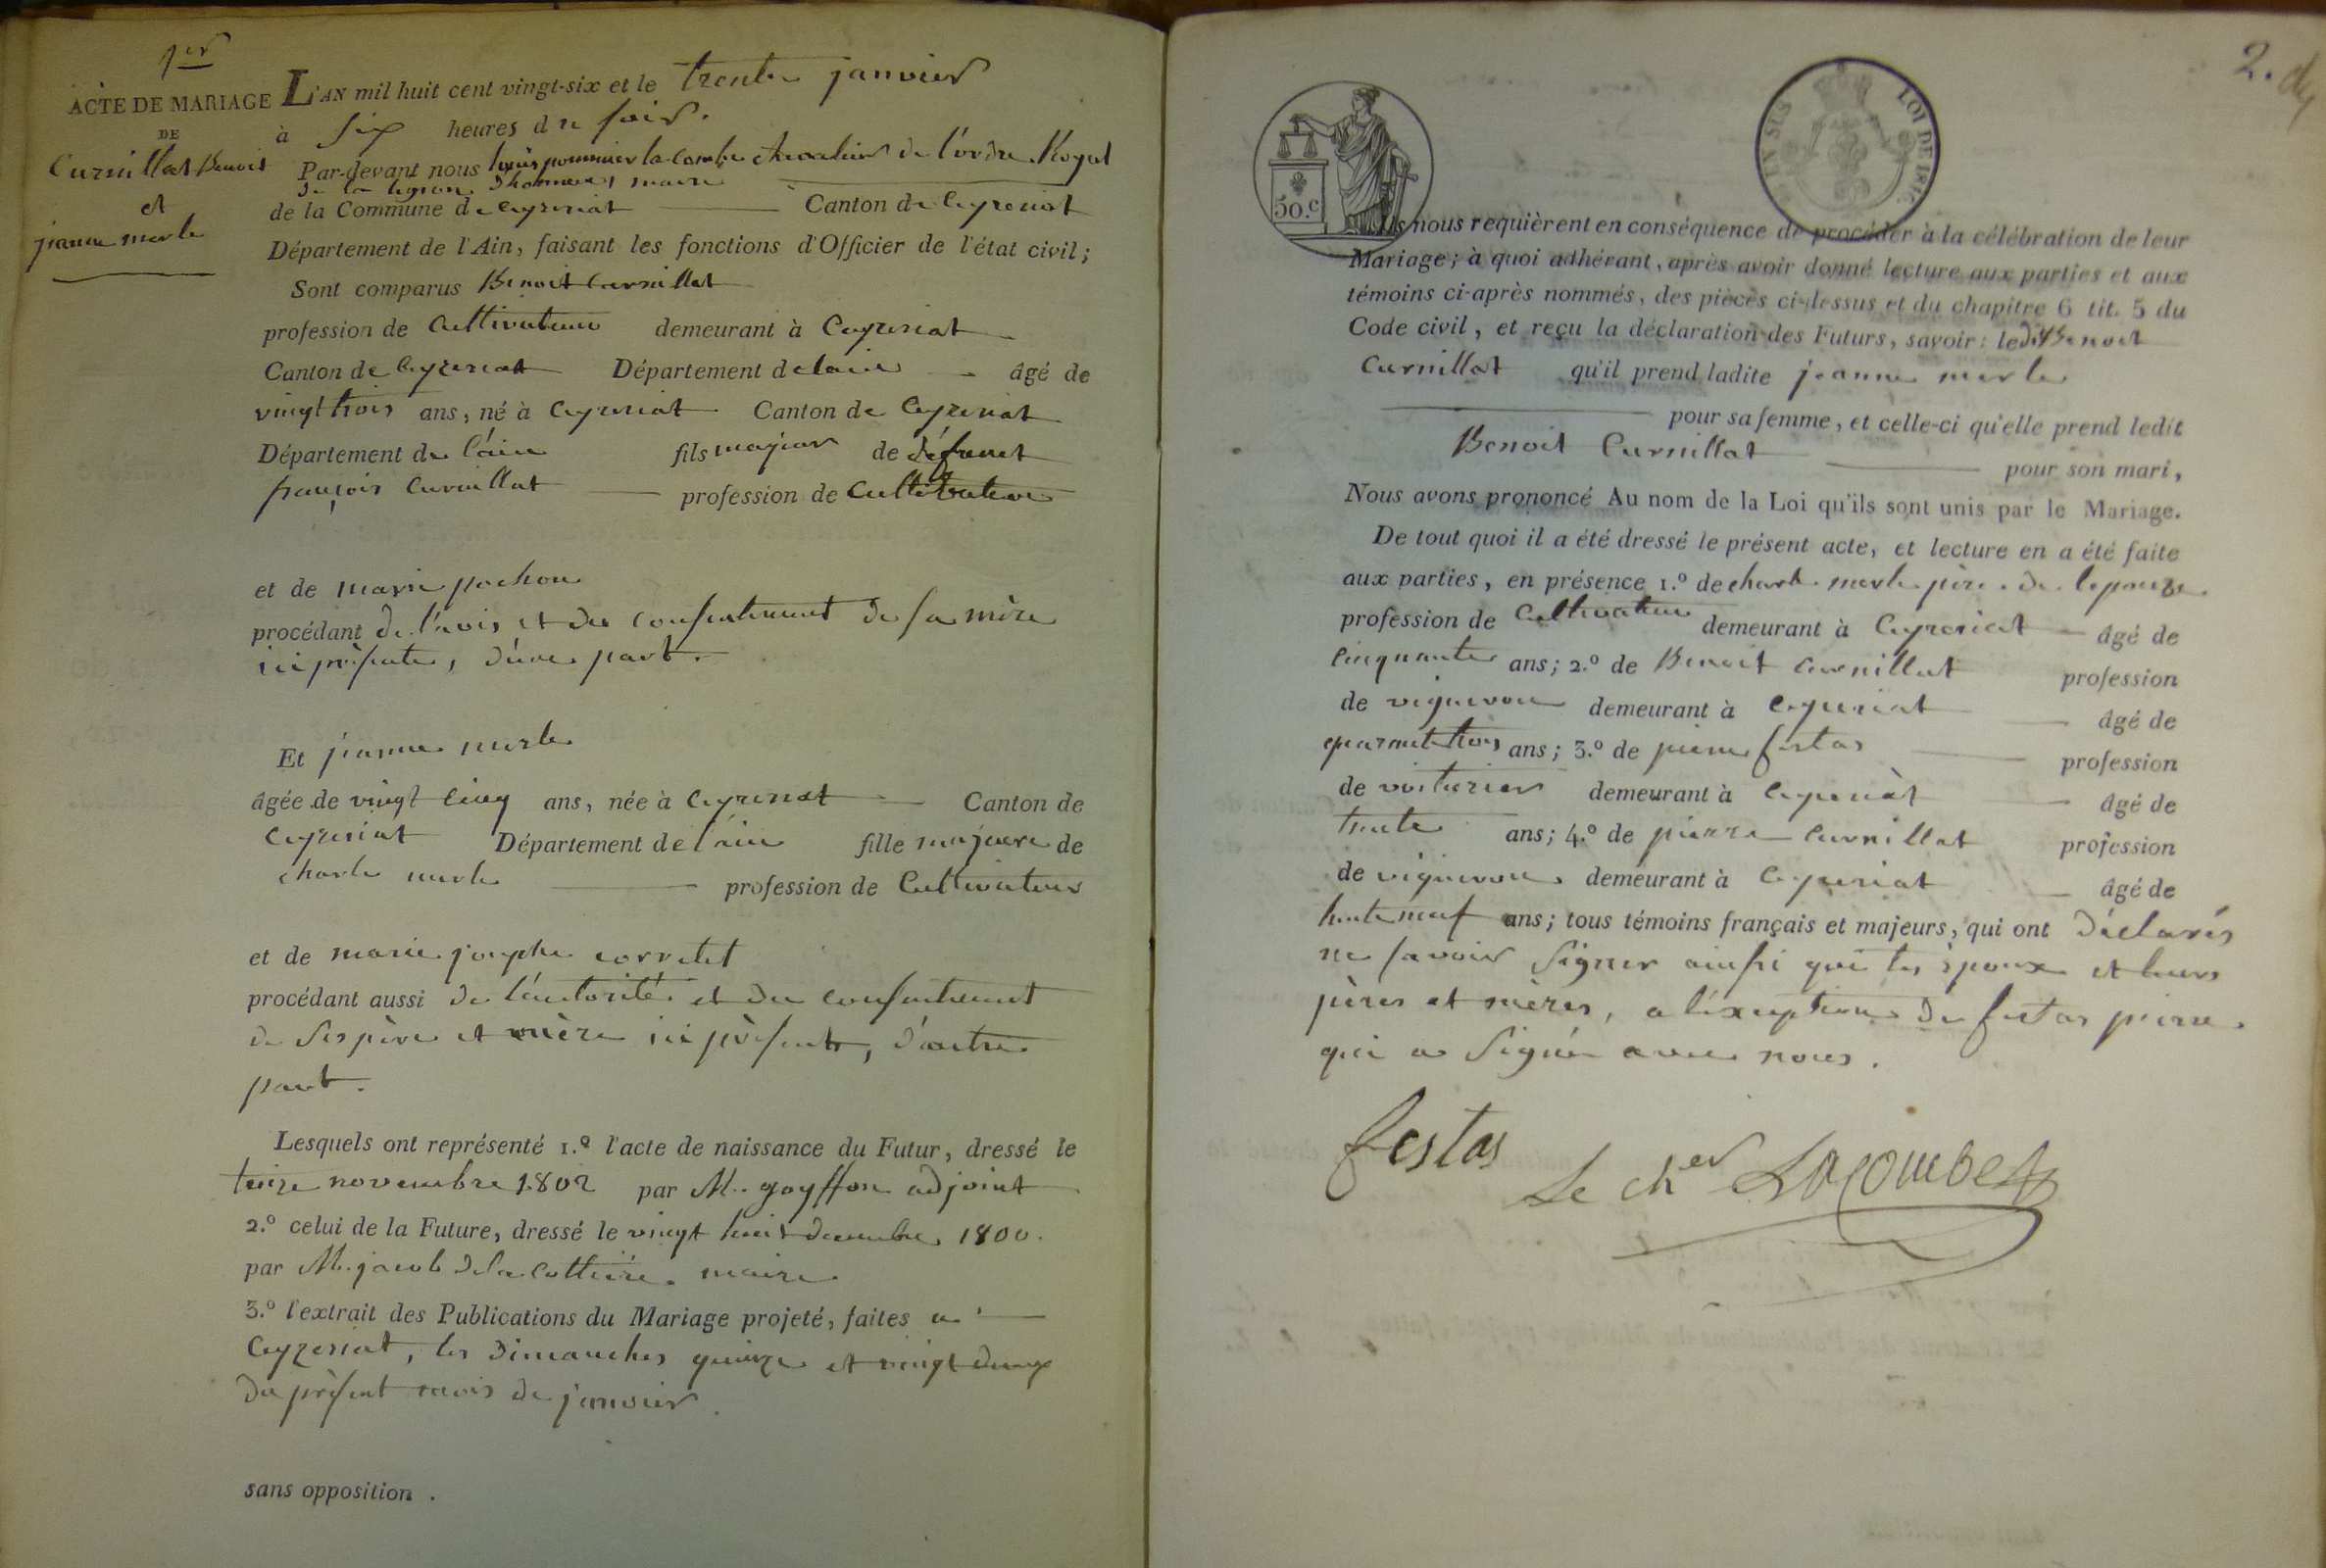 1er
ACTE DE MARIAGE
DE
Curnillat Benoit
et
jeanne merle
L'AN mil huit cent vingt-six et le trente janvier
à six heures du soir.
Par-devant nous louis pommier la combe chevalier de l'ordre Royal
de la légion d'honneur, maire
de la Commune de Ceyzeriat Canton de Ceyzeriat
Département de l'Ain, faisant les fonctions d'Officier de l'état civil;
Sont comparus Benoit Curnillat
profession de Cultivateur demeurant à Ceyzeriat
Canton de Ceyzeriat Département de lain âgé de
vingt trois ans, né à Ceyzeriat Canton de Ceyzeriat
Département de l'ain fils majeur de défunt
françois Curnillat profession de Cultivateur
et de marie pochon
procédant de l'avis et du consentement de sa mère
ici présente, d'une part.
Et jeanne merle
âgée de vingt cinq ans, née à Ceyzeriat Canton de
Ceyzeriat Département de l'ain fille majeure de
charle merle profession de Cultivateur
et de marie josephe corretet
procédant aussi de l'autorité et du consentement
de ses père et mère ici présents, d'autre
part.
Lesquels ont représenté 1.º l'acte de naissance du Futur, dressé le
treize novembre 1802 par M. goyffon adjoint
2.º celui de la Future, dressé le vingt huit decembre 1800.
par M. jacob de la cottière maire
3.º l'extrait des Publications du Mariage projeté, faites a
Ceyzeriat, les Dimanches quinze et vingt deux
du présent mois de janvier
sans opposition.
2.
50.c
LOI DE 1816
EN SUS
Ils nous requièrent en conséquence de procéder à la célébration de leur
Mariage; à quoi adhérant, après avoir donné lecture aux parties et aux
témoins ci-après nommés, des pièces ci-dessus et du chapitre 6 tit. 5 du
Code civil, et reçu la déclaration des Futurs, savoir: ledit Benoit
Curnillat qu'il prend ladite jeanne merle
pour sa femme, et celle-ci qu'elle prend ledit
Benoit Curnillat pour son mari,
Nous avons prononcé Au nom de la Loi qu'ils sont unis par le Mariage.
De tout quoi il a été dressé le présent acte, et lecture en a été faite
aux parties, en présence 1.º de charle merle père de lepouze
profession de Cultivateur demeurant à Ceyzeriat âgé de
cinquante ans; 2.º de Benoit Curnillat profession
de vigneron demeurant à Ceyzeriat âgé de
quarantetrois ans; 3.º de pierre festas profession
de voiturier demeurant à Ceyzeriat âgé de
trente ans; 4.º de pierre Curnillat profession
de vigneron demeurant à Ceyzeriat âgé de
trente neuf ans; tous témoins français et majeurs, qui ont déclarés
ne savoir signer ainsi que les époux et leurs
pères et mères, a l'exception de festas pierre
qui a signé avec nous.
festas
Le cher Lacombe